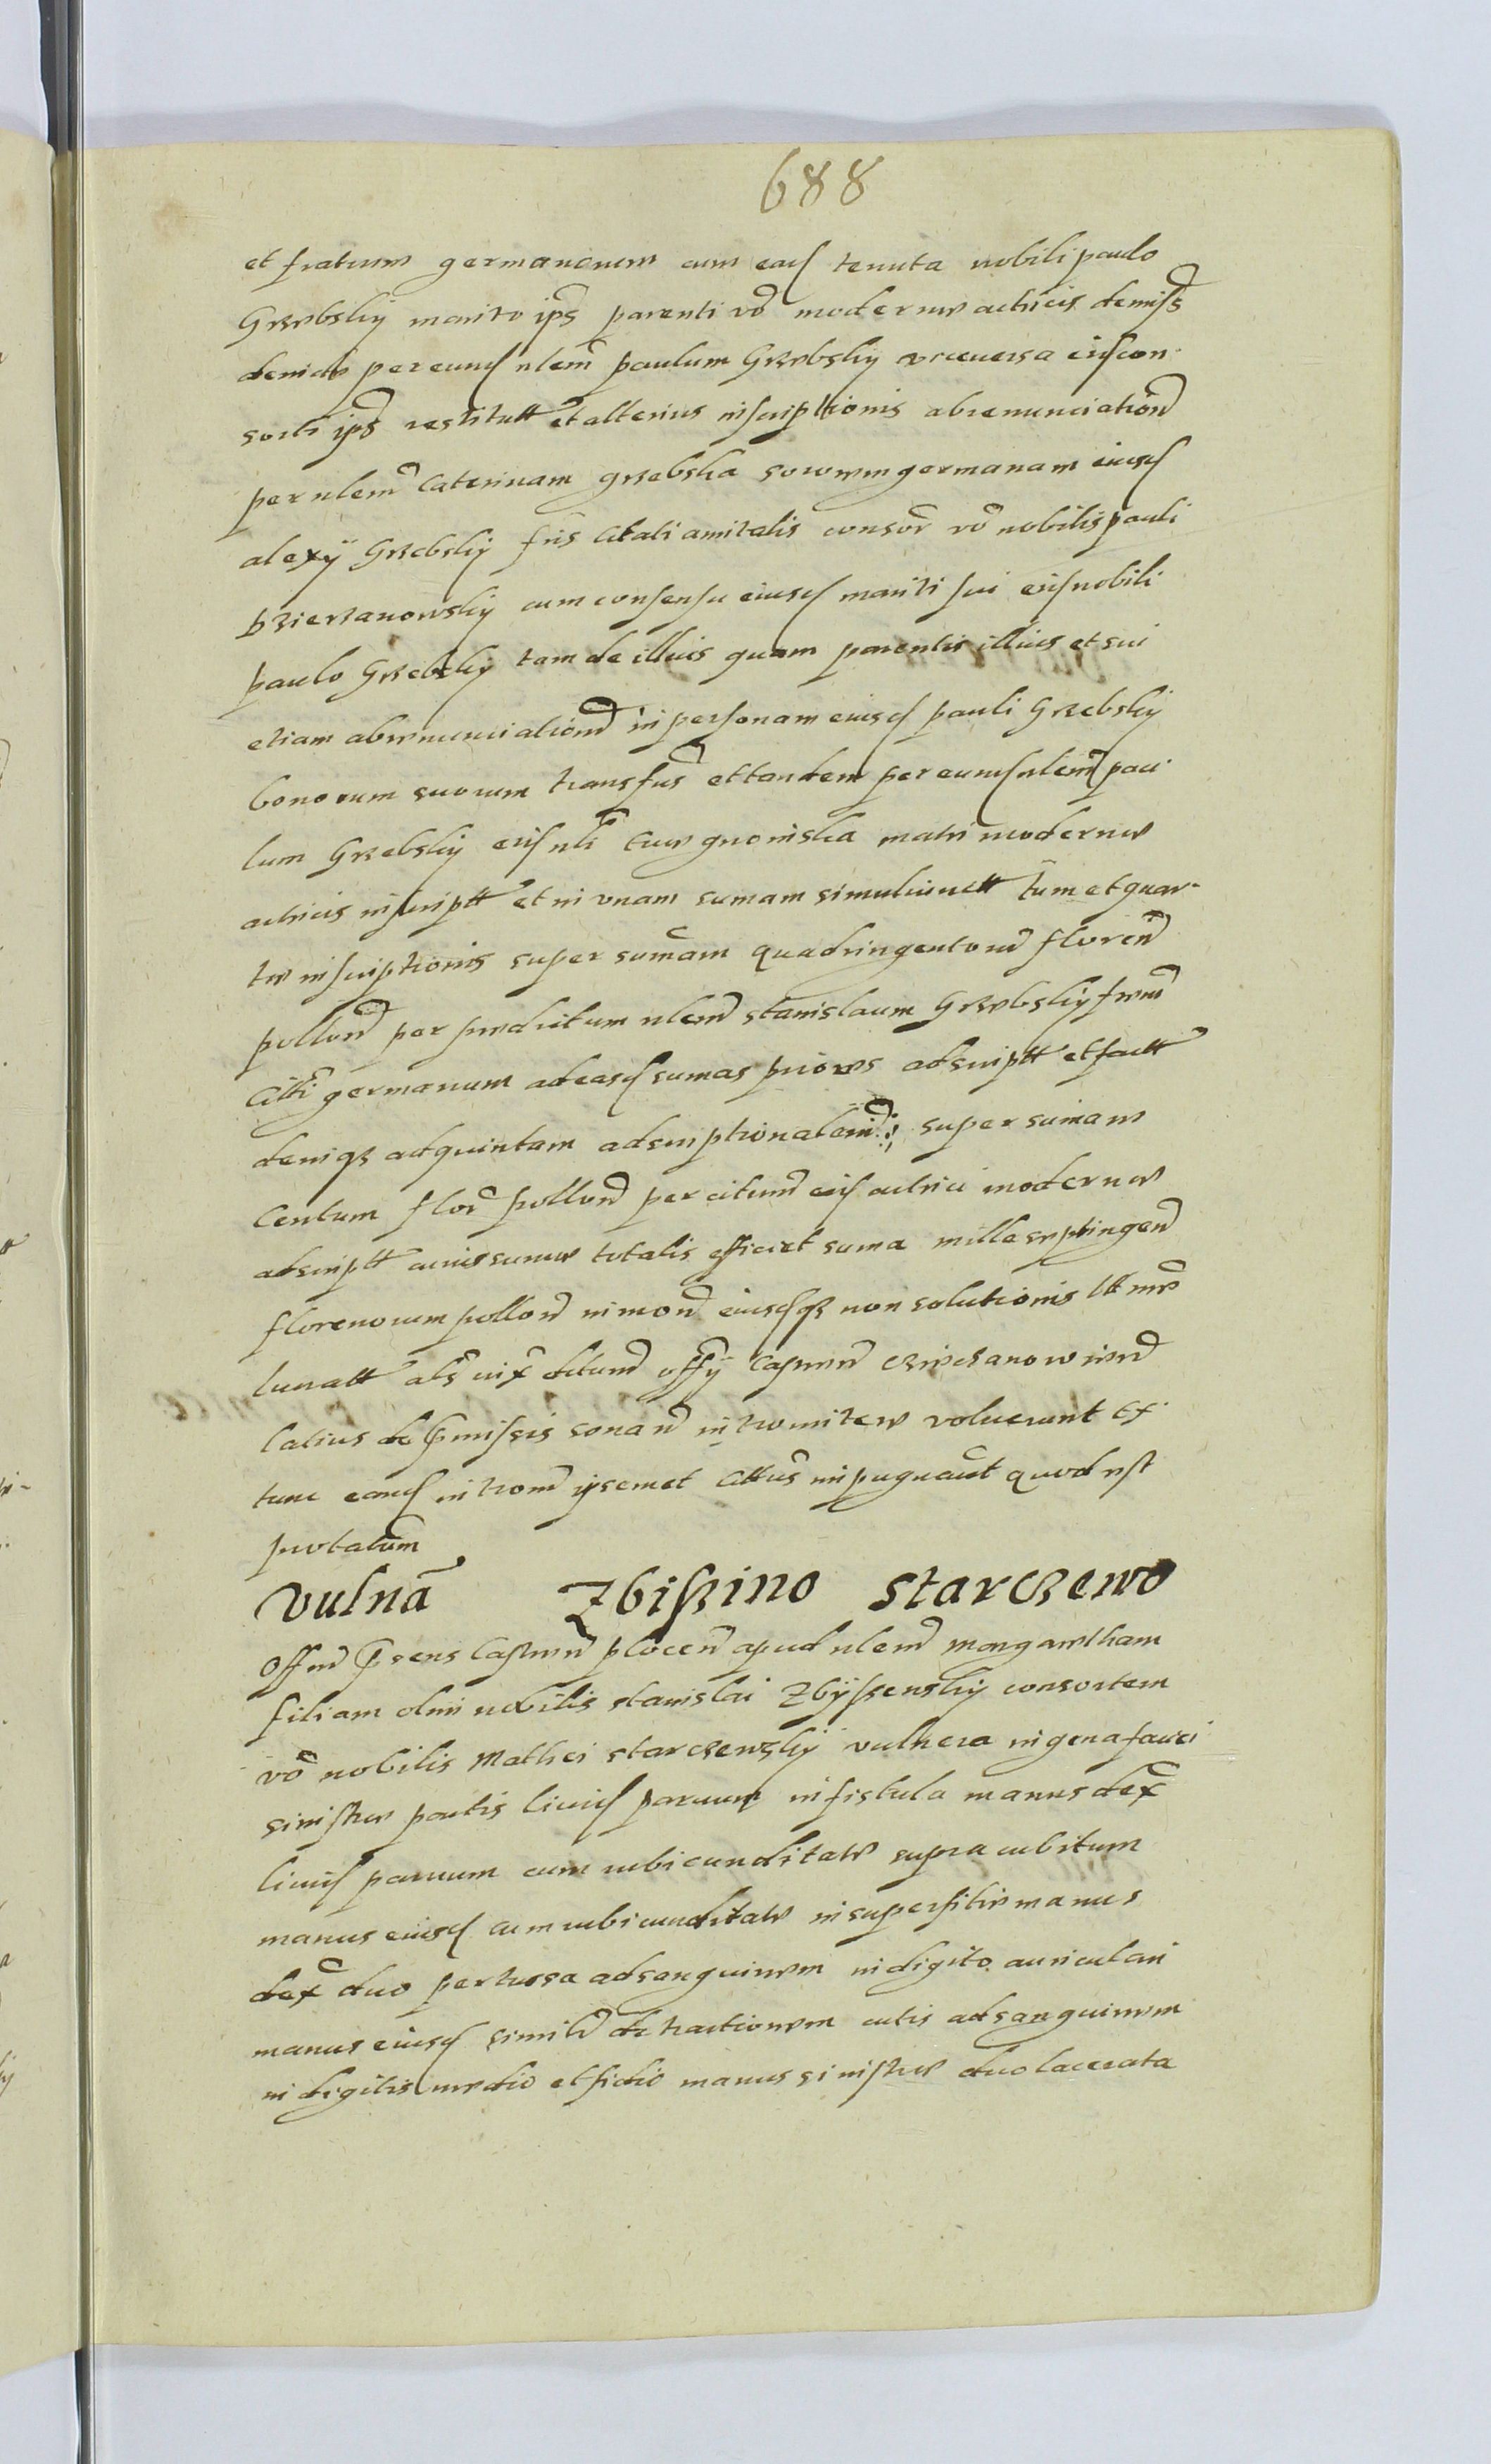 688
et fratrum germanorum cum eadᷤ tenuta nobili paulo
Grzebskij marito ips̄ parenti vō modernæ actricis demiss̄
demūm per eundᷤ nlem̄ paulum Grzebskij viceversa eidᷤ con-
sorti ips̄ restitutt et alterius inscriptionis abrenunciation̄
per nlem̄ Caterinam grzebska sororem germanam eiusdᷤ
alexÿ Grzebskij fris citati amitalis consor̄ vō nobilis pauli
brierzanowskij cum consensu eiusdᷤ mariti sui eidᷤ nobili
paulo Grzebskij tam de illius quam parentis illius et sui
etiam abrenunciation̄ in personam eiusdᷤ pauli Grzebskij
bonorum suorum transfus̄ et tandem per eundᷤ nlem̄ pau-
lum Grzebskij eidᷤ nli Ewæ gnoinska matri modernæ
actricis inscriptt et in vnam sumam simul iunctt tum et quar-
tæ inscriptionis super sumam quadringentorū floren̄
pollon̄ per prædictum nlem̄ stanislaum Grzebskij frem̄
citti germanum ad easdᷤ sumas priores adscriptt et factt
deniqz ad quintam adscriptionalem̄ super sumam
Centum flor̄ pollon̄ per citum̄ eidᷤ actrici modernæ
adscriptt cuius sumæ totalis efficiet suma mille septingen̄
florenorum pollon̄ in mon̄ eiusdᷤqz non solutionis ltt
lucratt als̄ iux̄ off̄ÿ Castren̄
latius de præmissis sonan̄ intromittere voluerunt Ex
tunc eandᷤ introm̄ ipsemet cittus̄ impugnauit quod est
protatum̄
Vulnā Zbiszino starczewo
Offm̄ præsens Castren̄ plocen̄ apud nlem̄ margaretham
filiam olim nobilis stanislai Zbÿszenskij consortem
vō nobilis Mathei starczewskij vulnera in gena faciei
sinistræ partis liuidᷤ paruum in fistula manus dex̄
liuidᷤ paruum cum rubicunditate supra cubitum
manus eiusdᷤ cum rubicunditate in superfitie manus
dex̄ duo pertussa ad sanguinem in digito auriculari
manus eiusdᷤ simil̄r detractionem cutis ad sanguinem
in digitis medio et fidio manus sinistræ duo lacerata